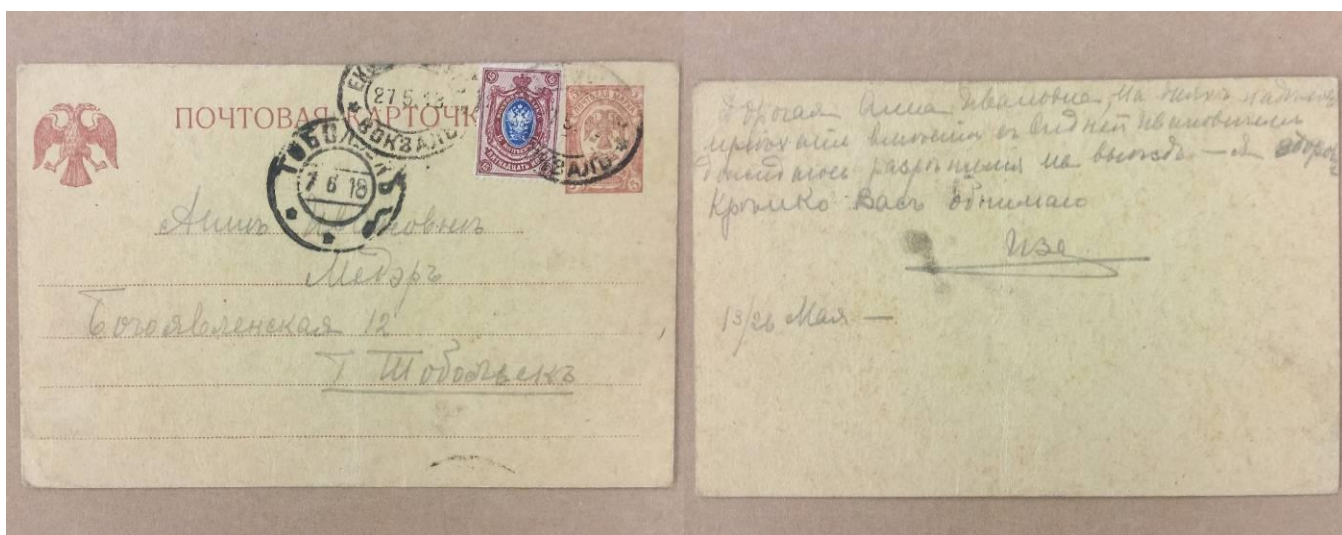 ПОЧТОВАЯ КАРТОЧК
27.5.18
ВОКЗАЛЪ
ПЯТНАДЦАТЬ
ТОБОЛЬСКЪ
7 6 18
Аннѣ Ивановнѣ
Медэръ
Богоявленская 12
Г Тобольскъ
Дорогая Анна Ивановна, на дняхъ надѣюсь
приѣхать вмѣстѣ съ Сидней Ивановичемъ
разрѣшения на выѣздъ. — Я здоро
Крѣпко Васъ обнимаю
Иза
13/26 Мая —